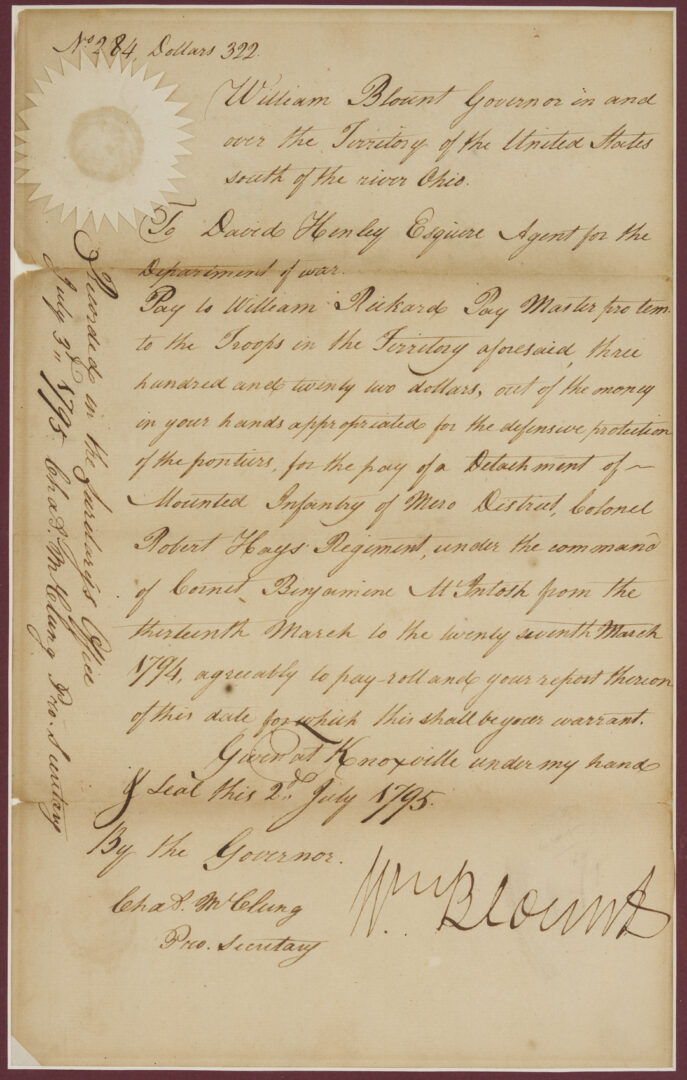 No 284, Dollars 322.
William Blount Governor in and
over the Territory of the United States
south of the river Ohio.
To David Henley Esquire Agent for the
Department of war.
Pay to William Rickard Pay Master pro tem
to the Troops in the Territory aforesaid, three
hundred and twenty two dollars, out of the money
in your hands appropriated for the defensive protection
of the frontiers, for the pay of a Detachment of ~
Mounted Infantry of Mero District, Colonel
Robert Hays Regiment, under the command
of Cornet Benjamine McIntosh from the
thirteenth March to the twenty seventh March
1794, agreeably to pay-roll and your report thereon
of this date for which this shall be your warrant.
Given at Knoxville under my hand
& Seal this 2d. July 1795.
By the Governor.
Chas. McClung
Pro. Secretary
Wm Blount
Recorded in the Secretarys Office
July 3d 1795 Chas. McClung Pro. Secretary